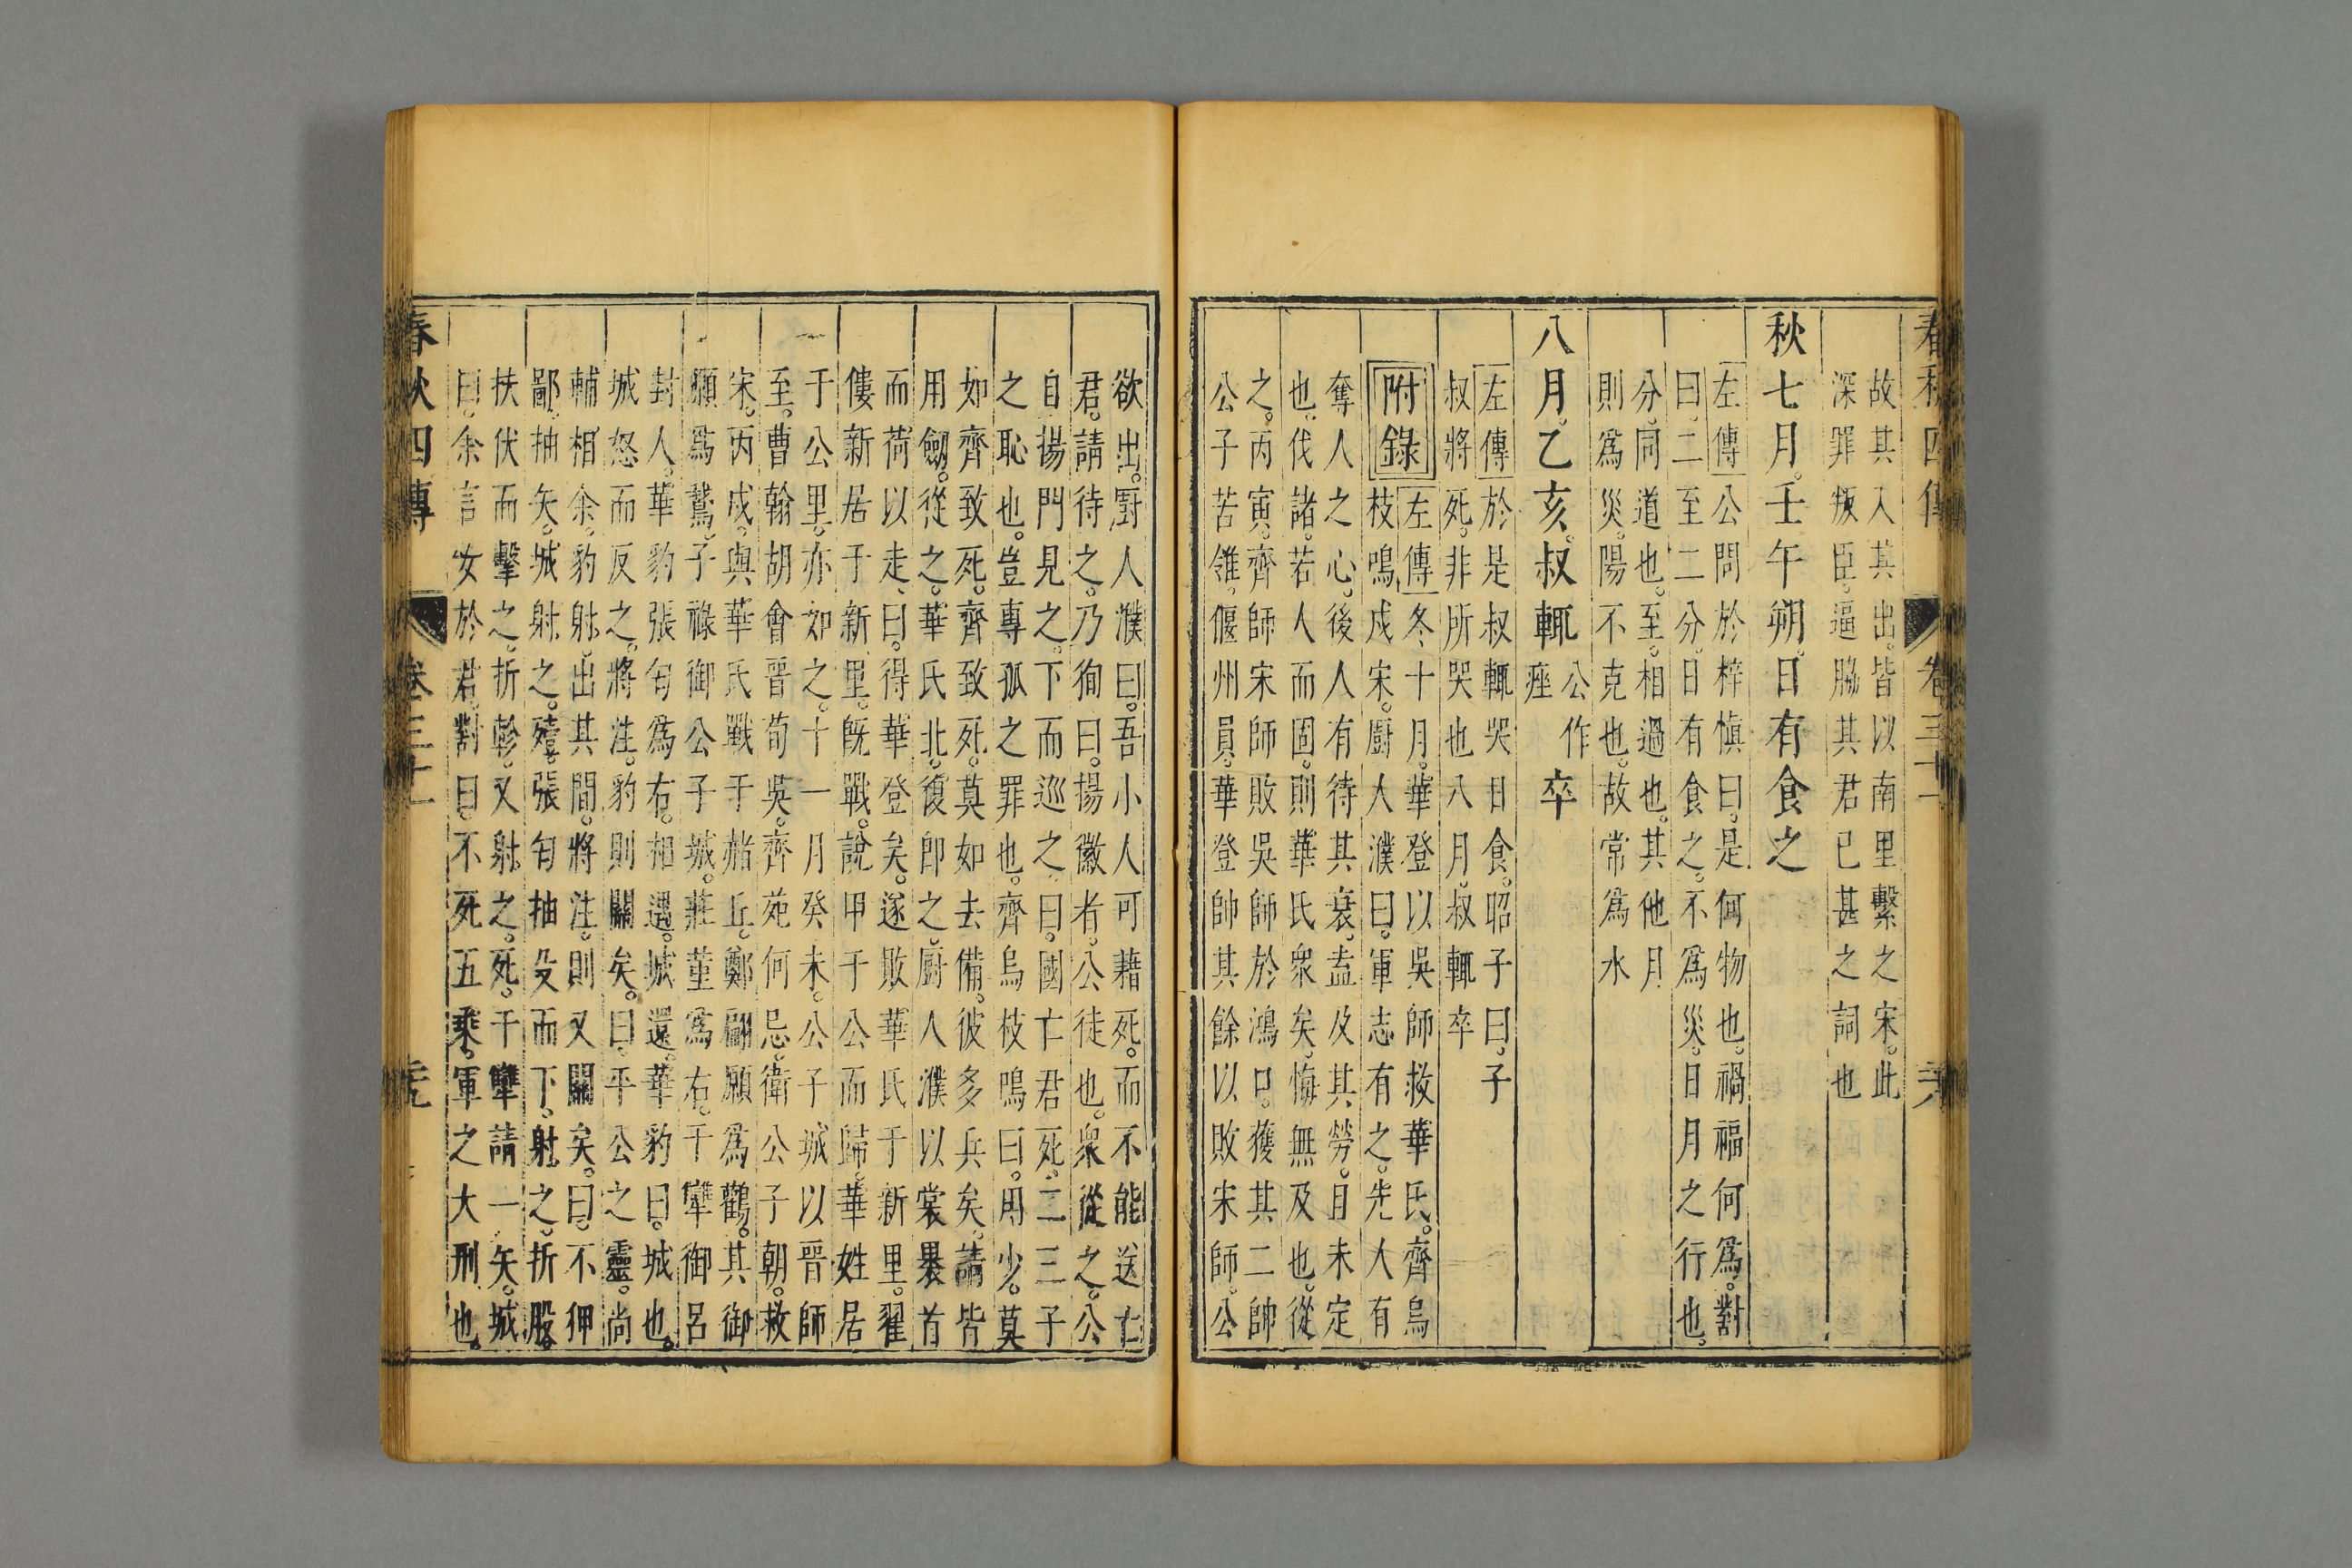 春秋四傳　卷三十一
故其入其出。皆以南里繫之宋。此
深罪叛臣。逼脇其君已甚之詞也
秋七月。壬午朔。日有食之
左傳公問於梓慎曰。是何物也。禍福何爲。對
曰。二至二分。日有食之。不爲災。日月之行也。
分。同道也。至。相過也。其他月
則爲災。陽不克也。故常爲水
八月。乙亥。叔輒公作痤卒
左傳於是叔輒哭日食。昭子曰。子
叔將死。非所哭也八月。叔輒卒
附錄左傳冬。十月。華登以吳師救華氏。齊烏
枝鳴戍宋。廚人濮曰。軍志有之。先人有
奪人之心。後人有待其衰。盍及其勞。且未定
也。伐諸。若人而固。則華氏衆矣。悔無及也。從
之。丙寅。齊師宋師敗吳師於鴻口。獲其二帥
公子苦雂。偃州員。華登帥其餘以敗宋師。公
欲出。厨人濮曰。吾小人可藉死。而不能送亡
君。請待之。乃徇曰。揚徽者。公徒也。衆從之。公
自揚門見之。下而巡之。曰。國亡君死。二三子
之恥也。豈專孤之罪也。齊烏枝鳴曰。用少。莫
如齊致死。齊致死。莫如去備。彼多兵矣。請皆
用劒。從之。華氏北。復即之。廚人濮以裳裹首
而荷以走。曰。得華登矣。遂敗華氏于新里。翟
僂新居于新里。旣戰。說甲于公而歸。華姓居
于公里。亦如之。十一月癸未。公子城以晉師
至。曹翰胡會晉荀吳。齊苑何忌。衛公子朝。救
宋。丙戌。與華氏戰于赭丘。鄭翩願爲鸛。其御
願爲鵞。子祿御公子城。莊堇爲右。干犨御呂
封人。華豹張匄爲右。相遇。城還。華豹曰。城也。
城怒而反之。將注。豹則關矣。曰。平公之靈。尚
輔相余。豹射。出其間。將注。則又關矣。曰。不狎
鄙。抽矢。城射之。殪。張匄抽殳而下。射之。折股。
扶伏而擊之。折軫。又射之。死。干犨請一矢。城
曰。余言女於君。對曰。不死五乘。軍之大刑也。
春秋四傳　卷三十一